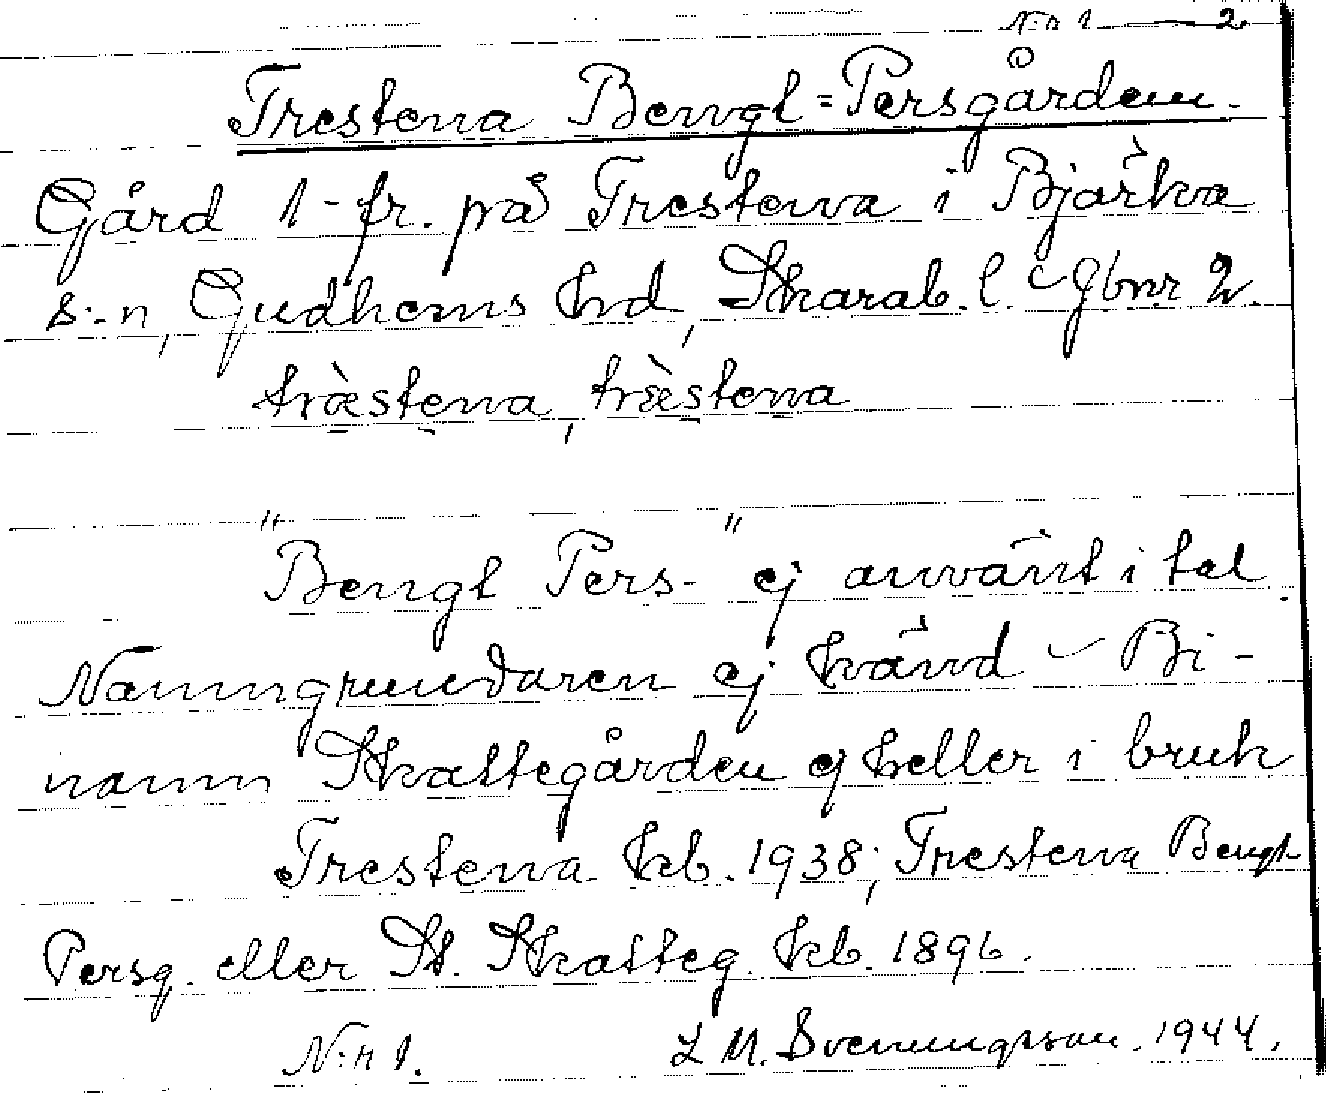 N:o 1 — 2
Trestena Bengt-Persgården.
Gård 1-fr. på Trestena i Bjärka
s:n, Gudhems hd, Skarab. l. Gbnr 2.
træ̀stena, træ̀stena
"Bengt Pers-" ej använt i tal.
Namngrundaren ej känd – Bi-
namn Skattegården ej heller i bruk
Trestena kb. 1938; Trestena Bengt
Persg. eller St. Skatteg. kb. 1896.
N:r 1. L M. Svenungsson. 1944.